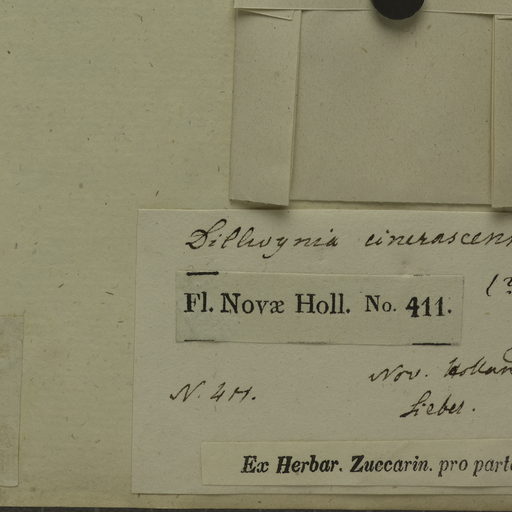 Dillwynia cinerascens
(?
Fl. Novæ Holl. No. 411.
N. 411.
Nov. Hollan
Sieber.
Ex Herbar. Zuccarin. pro parte